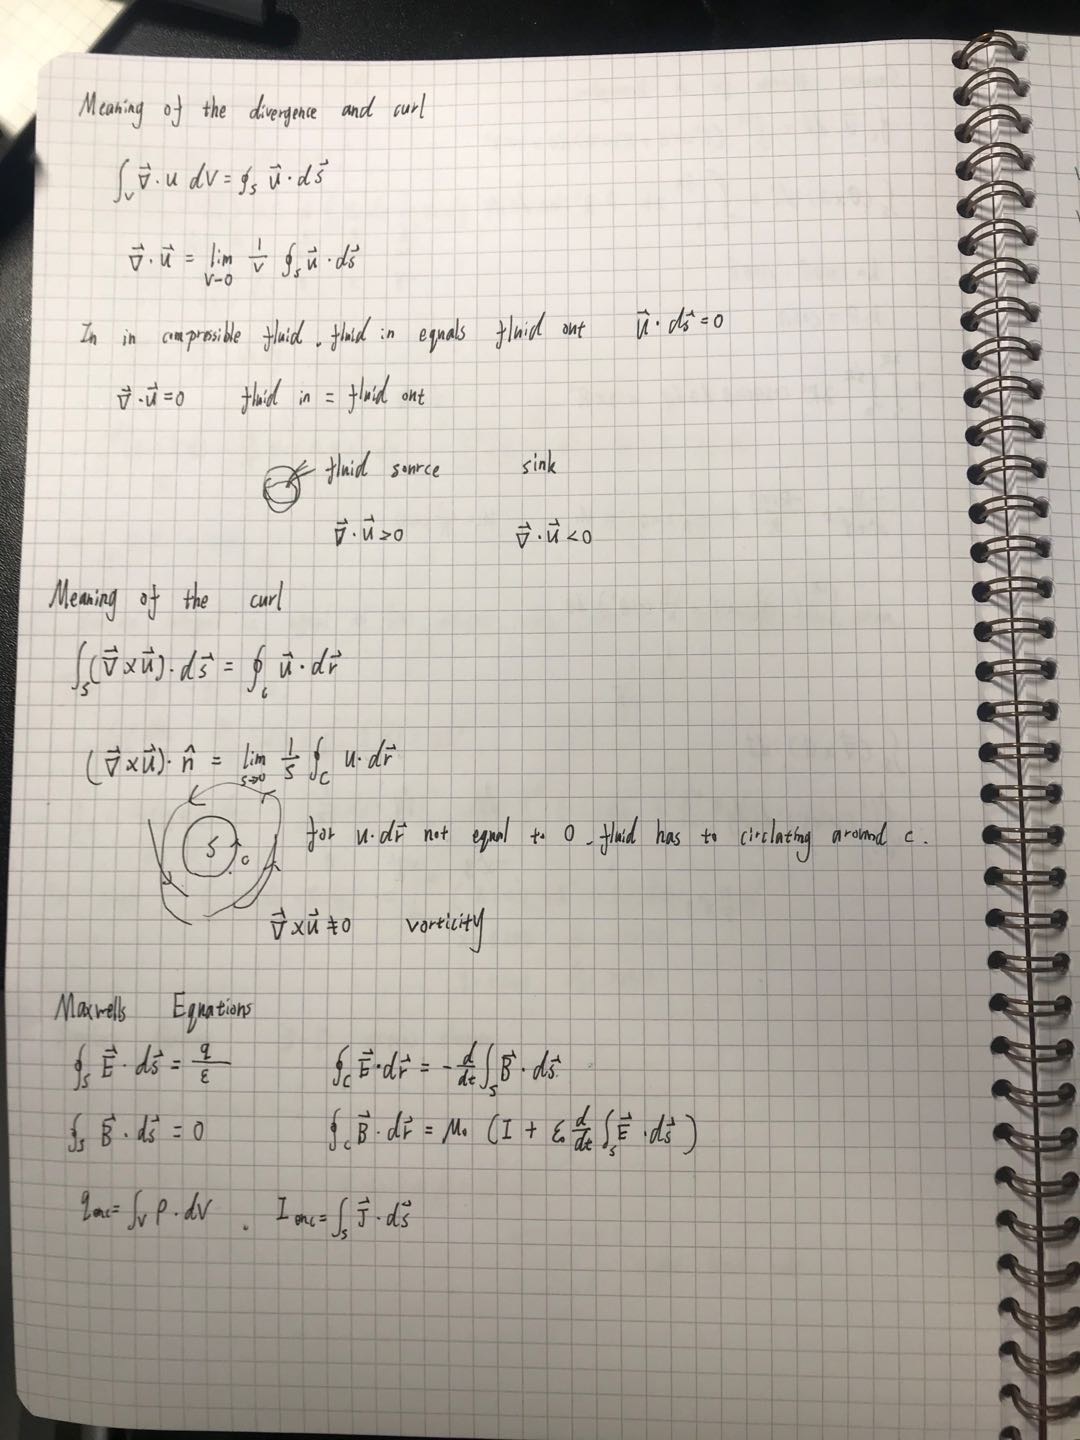 Meaning of the divergence and curl
∫_V ∇⃗·u dV = ∮_S u⃗·ds⃗
∇⃗·u⃗ = lim_{V→0} 1/V ∮_S u⃗·ds⃗
In in compressible fluid, fluid in equals fluid out u⃗·ds⃗=0
∇⃗·u⃗=0 fluid in = fluid out
fluid source sink
∇⃗·u⃗>0 ∇⃗·u⃗<0
Meaning of the curl
∫_S(∇⃗×u⃗)·ds⃗ = ∮_C u⃗·dr⃗
(∇⃗×u⃗)·n̂ = lim_{S→0} 1/S ∮_C u·dr⃗
S
c
for u·dr⃗ not equal to 0, fluid has to circlating around c.
∇⃗×u⃗≠0 vorticity
Maxwells Equations
∮_S E⃗·ds⃗ = q/ε ∮_C E⃗·dr⃗ = -d/dt ∫_S B⃗·ds⃗
∮_S B⃗·ds⃗ = 0 ∮_C B⃗·dr⃗ = μ₀ (I + ε₀ d/dt ∫_S E⃗·ds⃗)
q_enc=∫_V ρ·dV , I_enc=∫_S J⃗·ds⃗